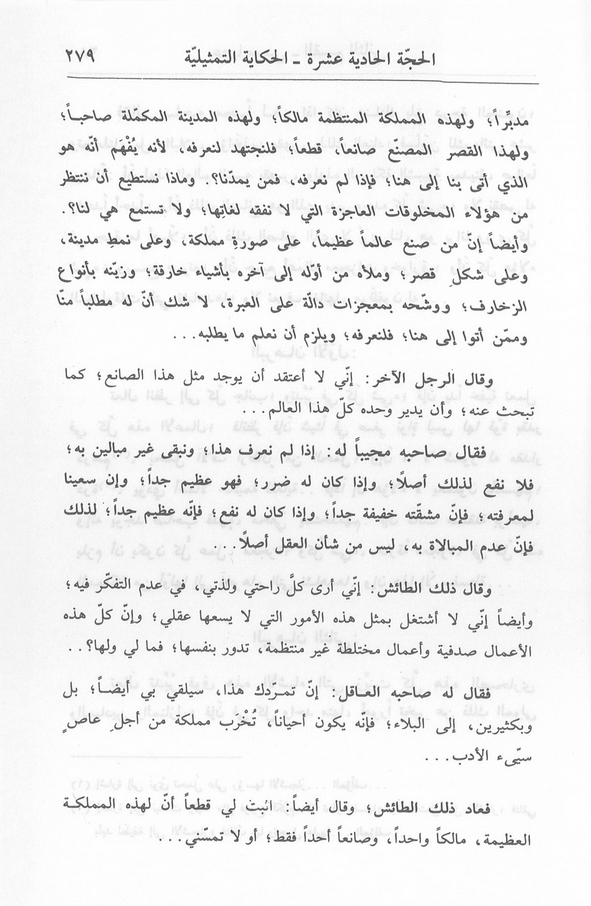 الحجّة الحادية عشرة ـ الحكاية التمثيليّة ٢٧٩
مدبِّراً؛ ولهذه المملكة المنتظمة مالكاً؛ ولهذه المدينة المكمّلة صاحباً؛
ولهذا القصر المصنّع صانعاً، قطعاً؛ فلنجتهد لنعرفه، لأنه يُفْهَم أنّه هو
الذي أتى بنا إلى هنا؛ فإذا لم نعرفه، فمن يمدّنا؟. وماذا نستطيع أن ننتظر
من هؤلاء المخلوقات العاجزة التي لا نفقه لغاتها؛ ولا تستمع هي لنا؟.
وأيضاً إنّ من صنع عالماً عظيماً، على صورةِ مملكة، وعلى نمطِ مدينة،
وعلى شكلِ قصر؛ وملأه من أوّله إلى آخره بأشياء خارقة؛ وزيّنه بأنواع
الزخارف؛ ووشّحه بمعجزات دالّة على العبرة، لا شك أنّ له مطلباً منّا
وممّن أتوا إلى هنا؛ فلنعرفه؛ ويلزم أن نعلم ما يطلبه...
وقال الرجل الآخر: إنّي لا أعتقد أن يوجد مثل هذا الصانع؛ كما
تبحث عنه؛ وأن يدير وحده كلّ هذا العالم...
فقال صاحبه مجيباً له: إذا لم نعرف هذا؛ ونبقى غير مبالين به؛
فلا نفع لذلك أصلاً؛ وإذا كان له ضرر؛ فهو عظيم جداً؛ وإن سعينا
لمعرفته؛ فإنّ مشقّته خفيفة جداً؛ وإذا كان له نفع؛ فإنّه عظيم جداً؛ لذلك
فإنّ عدم المبالاة به، ليس من شأن العقل أصلاً...
وقال ذلك الطائش: إنّي أرى كلَّ راحتي ولذتي، في عدم التفكّر فيه؛
وأيضاً إنّي لا أشتغل بمثل هذه الأمور التي لا يسعها عقلي؛ وإنّ كلّ هذه
الأعمال صدفية وأعمال مختلطة غير منتظمة، تدور بنفسها؛ فما لي ولها؟..
فقال له صاحبه العاقل: إنّ تمرّدك هذا، سيلقي بي أيضاً؛ بل
وبكثيرين، إلى البلاء؛ فإنّه يكون أحياناً، تُخْرَب مملكة من أجل عاصٍ
سيّىء الأدب...
فعاد ذلك الطائش؛ وقال أيضاً: اثبت لي قطعاً أنّ لهذه المملكة
العظيمة، مالكاً واحداً، وصانعاً أحداً فقط؛ أو لا تمسّني...